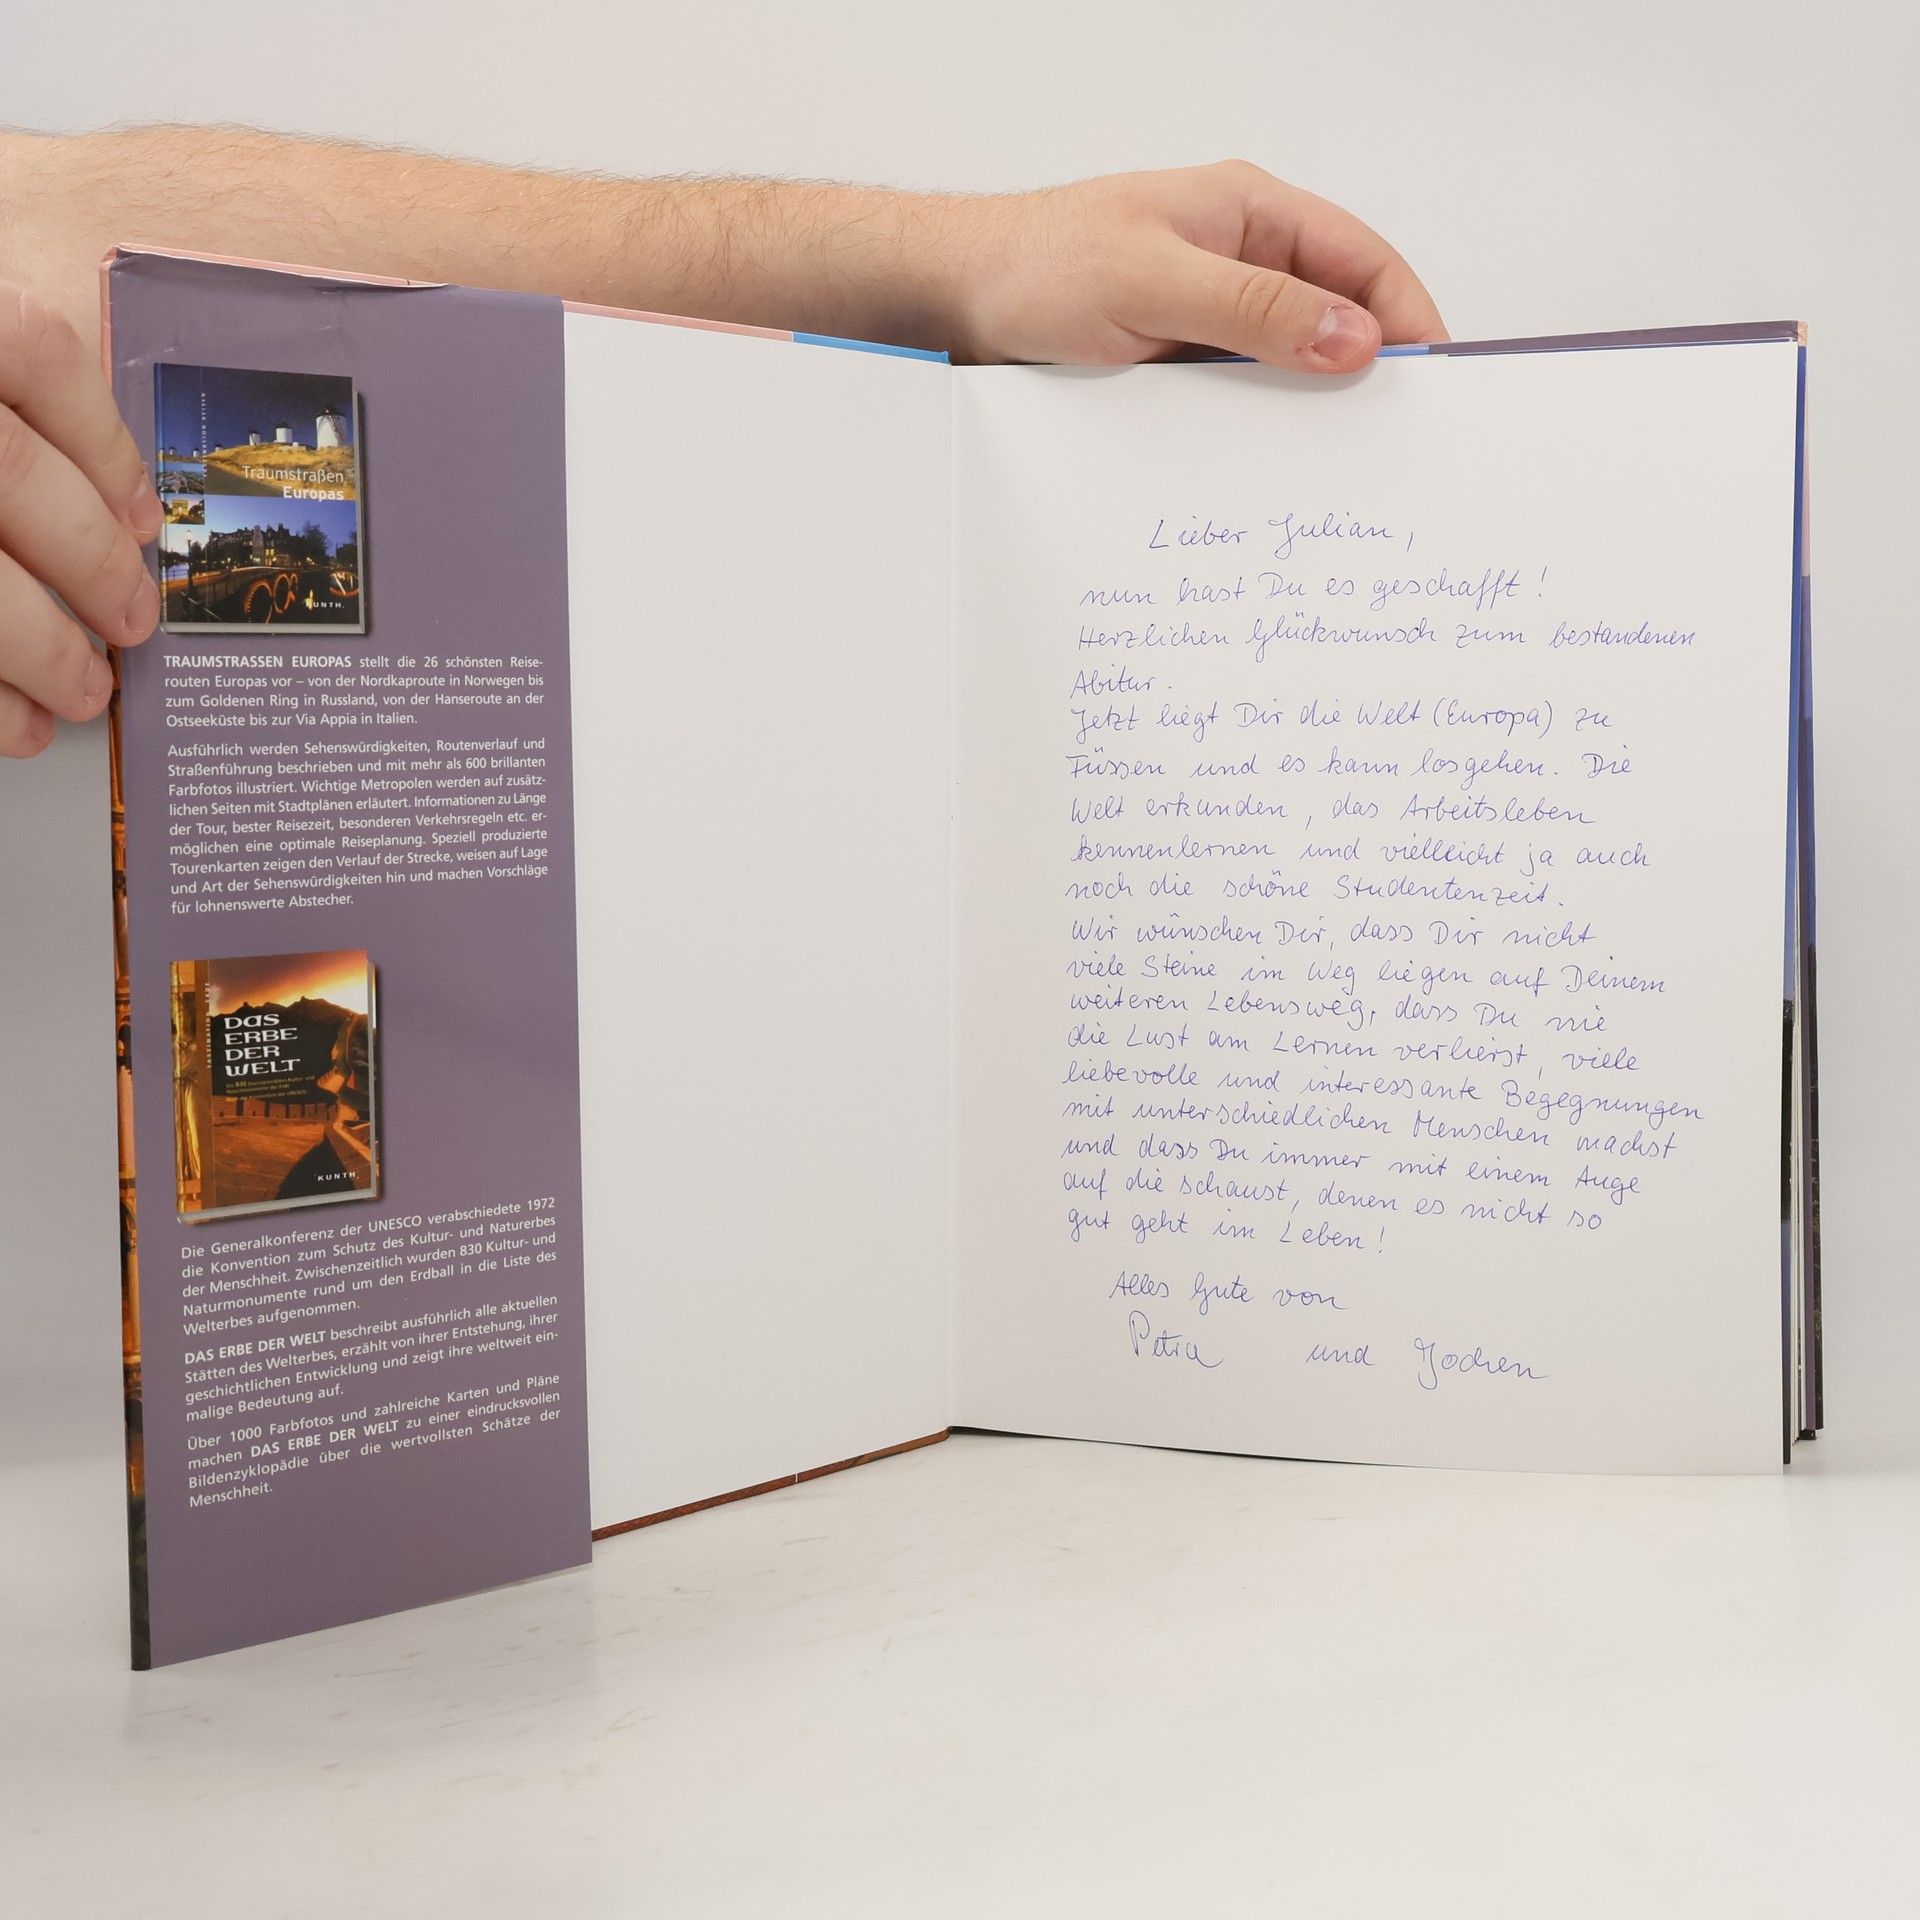 FASZINATION REISEN
Traumstraßen
Europas
KUNTH
TRAUMSTRASSEN EUROPAS stellt die 26 schönsten Reise-
routen Europas vor – von der Nordkaproute in Norwegen bis
zum Goldenen Ring in Russland, von der Hanseroute an der
Ostseeküste bis zur Via Appia in Italien.
Ausführlich werden Sehenswürdigkeiten, Routenverlauf und
Straßenführung beschrieben und mit mehr als 600 brillanten
Farbfotos illustriert. Wichtige Metropolen werden auf zusätz-
lichen Seiten mit Stadtplänen erläutert. Informationen zu Länge
der Tour, bester Reisezeit, besonderen Verkehrsregeln etc. er-
möglichen eine optimale Reiseplanung. Speziell produzierte
Tourenkarten zeigen den Verlauf der Strecke, weisen auf Lage
und Art der Sehenswürdigkeiten hin und machen Vorschläge
für lohnenswerte Abstecher.
FASZINATION ERDE
DAS
ERBE
DER
WELT
KUNTH
Die Generalkonferenz der UNESCO verabschiedete 1972
die Konvention zum Schutz des Kultur- und Naturerbes
der Menschheit. Zwischenzeitlich wurden 830 Kultur- und
Naturmonumente rund um den Erdball in die Liste des
Welterbes aufgenommen.
DAS ERBE DER WELT beschreibt ausführlich alle aktuellen
Stätten des Welterbes, erzählt von ihrer Entstehung, ihrer
geschichtlichen Entwicklung und zeigt ihre weltweit ein-
malige Bedeutung auf.
Über 1000 Farbfotos und zahlreiche Karten und Pläne
machen DAS ERBE DER WELT zu einer eindrucksvollen
Bildenzyklopädie über die wertvollsten Schätze der
Menschheit.
Lieber Julian,
nun hast Du es geschafft!
Herzlichen Glückwunsch zum bestandenen
Abitur.
Jetzt liegt Dir die Welt (Europa) zu
Füssen und es kann losgehen. Die
Welt erkunden, das Arbeitsleben
kennenlernen und vielleicht ja auch
noch die schöne Studentenzeit.
Wir wünschen Dir, dass Dir nicht
viele Steine im Weg liegen auf Deinem
weiteren Lebensweg, dass Du nie
die Lust am Lernen verlierst, viele
liebevolle und interessante Begegnungen
mit unterschiedlichen Menschen machst
und dass Du immer mit einem Auge
auf die schaust, denen es nicht so
gut geht im Leben!
Alles Gute von
Petra und Jochen